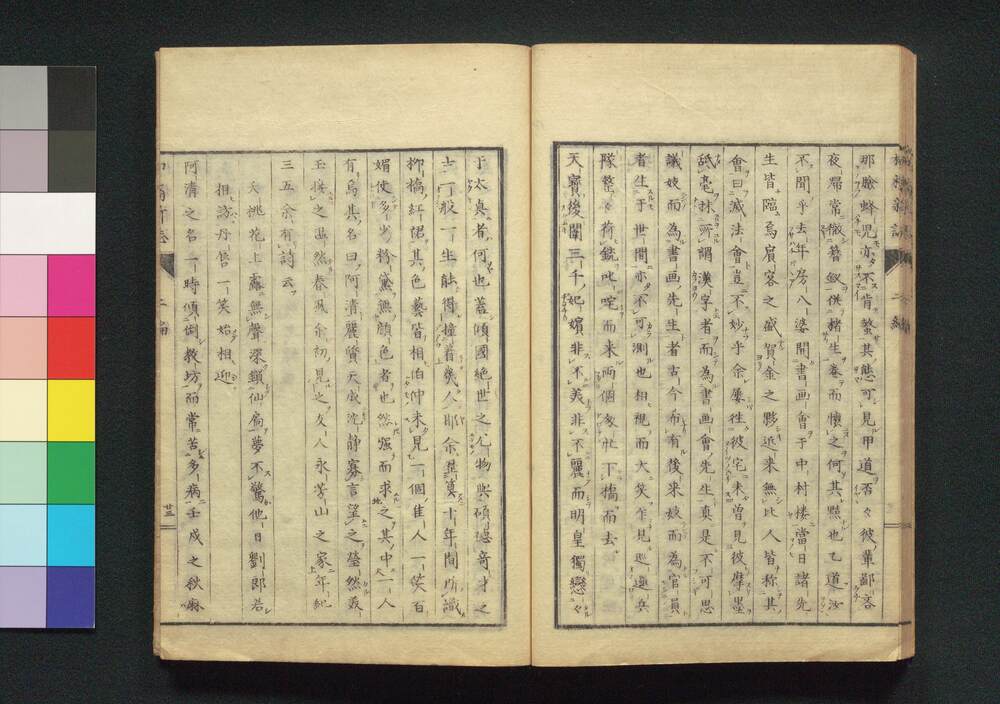 柳橋新誌 二編
那臉蜂児亦不肯螫其態可見甲道否々彼輩鄙吝
夜屏常徹簪釵併楮生巻而懐之何其黠也乙道汝
不聞乎去年房八婆開書画會于中村楼當日諸先
生皆臨焉賓客之盛賀金之夥近來無比人皆称其
會曰滅法會豈不妙乎余屡往彼宅未曽見彼摩墨
舐毫抹所謂漢字者而為書画會先生真是不可思
議妓而為書画先生者古今布有後来妓而為官員
者生于世間亦不可測也相視而大笑乍見巡邏兵
隊整々荷銃叱咤而来両個匆忙下橋而去
天寳後閣三千妃嬪非不美非不麗而明皇獨戀々
于太真者何也蓋傾國絶世之尤物與碩徳奇才之
士一般一生能得撞着幾人耶余叢莫十年間所識
柳橋紅裙其色藝皆相伯仲未見一個佳人一笑百
媚使多少粉黛無顔色者也然强而求之其中一人
有焉其名曰阿清麗質天成沈静寡言望之瑩然義
玉接之温然春風余初見之友人永芳山之家年紀
三五余有詩云
夭桃花上露無聲深鎖仙扃夢不驚他日劉郎若
相訪丹唇一笑始相迎
阿清之名一時傾倒教坊而常苦多病壬戌之秋嬰
二編
廿三